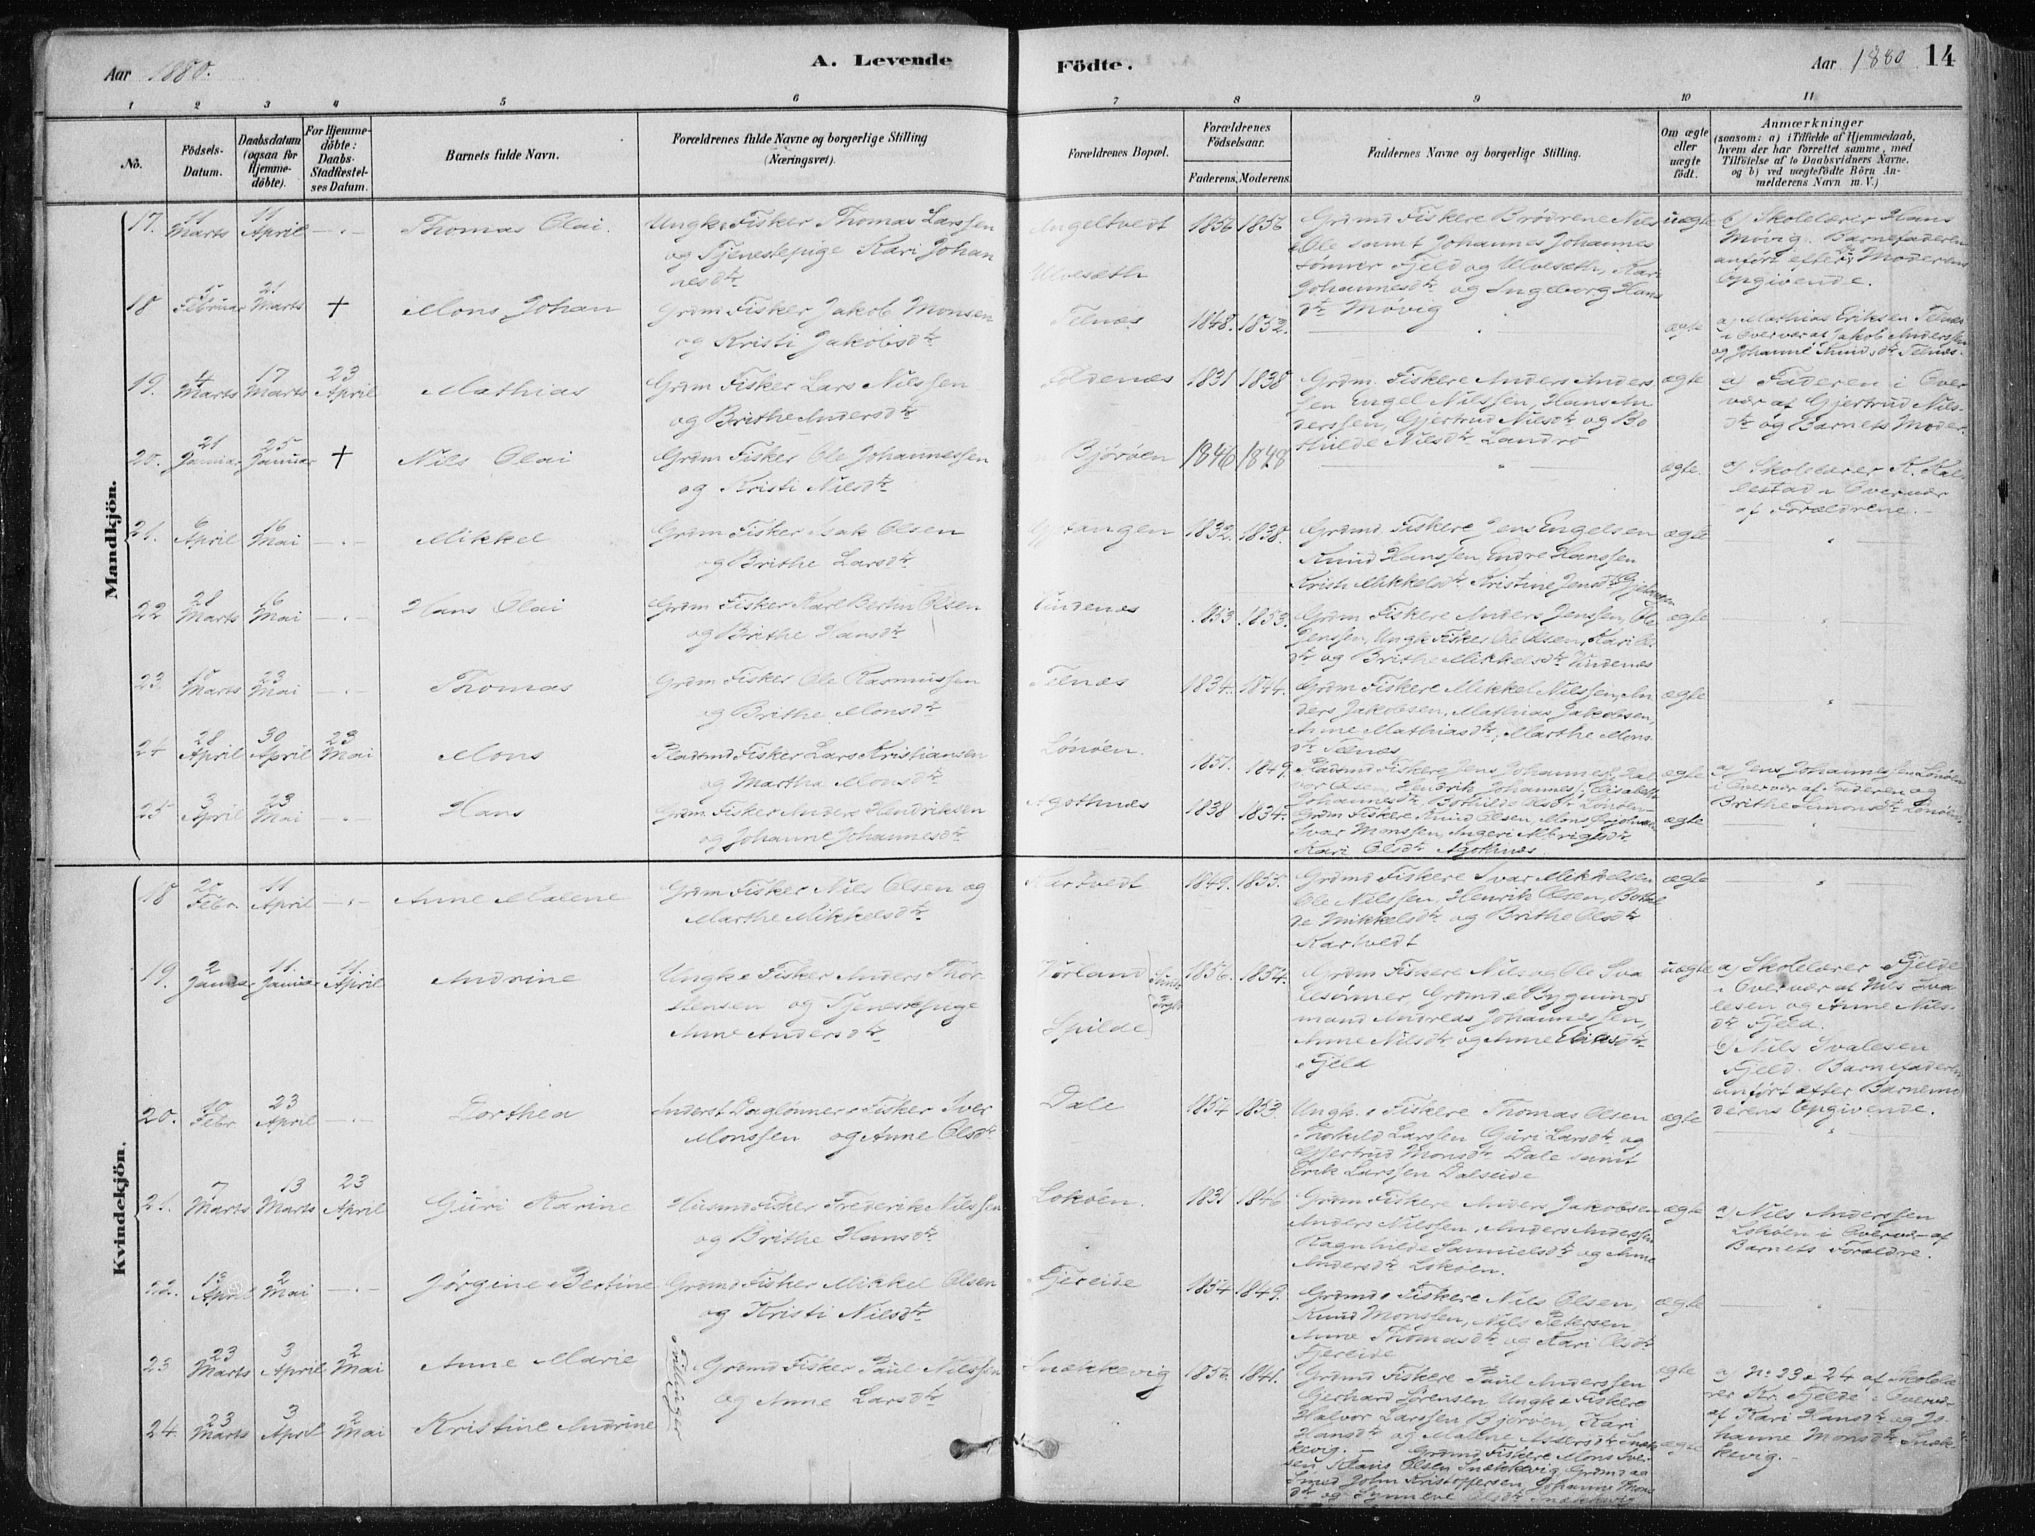 Aar 1880.
A. Levende
Födte.
Aar 1880
14
1 2 3 4 5 6 7 8 9 10 11
No.
Födsels-
Datum.
Daabsdatum
(ogsaa for
Hjemme-
döbte).
For Hjemme-
döbte:
Daabs-
Stadfæstel-
ses Datum.
Barnets fulde Navn.
Forældrenes fulde Navne og borgerlige Stilling
(Næringsvei).
Forældrenes Bopæl.
Forældrenes
Födselsaar.
Faderens. Moderens.
Faddernes Navne og borgerlige Stilling.
Om ægte
eller
uægte
födt.
Anmærkninger
(saasom: a) i Tilfælde af Hjemmedaab,
hvem der har forrettet samme, med
Tilföielse af to Daabsvidners Navne.
og b) ved uægtefödte Börn An-
melderens Navn m. V.)
Mandkjön.
17. 11 Marts 11 April - . - Thomas Olai.
Ungk. & Fisker Thomas Larssen
og Tjenestepige Kari Johan
nesdtr
Angeltvedt
Ulvesæth
1856 1856
Grdmd Fiskere Brødrene Nils
& Ole samt Johannes Johannes
sønner Fjeld og Ulvesæth, Kari
Johannesdtr og Ingeborg Hans
dtr Møvig
uægte
b) Skolelærer Hans
Møvig. Barnefaderen
anført efter Moderens
Opgivende.
18 5 Februar 21 Marts + Mons Johan
Grdm Fisker Jakob Monsen
og Kristi Jakobsdtr
Telnæs
1848. 1852.
ægte
a) Mathias Eriksen Telnæs
i Overvær af Jakob Anderssen
og Johanne Knudsdtr Telnæs.
19. 4 Marts 17 Marts 23 April Mathias
Grdm Fisker Lars Nilssen
og Brithe Andersdtr
1831 1838
Grdm. Fiskere Anders Anders
sen Engel Nilssen, Hans An
derssen, Gjertrud Nilsdtr og Bo
thilde Nilsdtr Landrø
ægte
a) Faderen i Over
vær af Gjertrud Nils-
dtr og Barnets Moder.
20. 21 Januar 25 Januar + Nils Olai
Grdm Fisker Ole Johannessen
og Kristi Nilsdtr
Bjørøen
1846 1848
ægte.
a) Skolelærer K. Kal
lestad i Overvær
af Forældrene.
21. 6 April 16 Mai - . - Mikkel
Grdm Fisker Isak Olsen
og Brithe Larsdtr
1832. 1838.
Grdmd Fiskere Jens Engelsen
Knud Hanssen, Endre Hanssen
Kristi Mikkelsdtr Kristine Jensdtr
ægte
22 28 Marts 16 Mai - . - Hans Olai
Grdm Fisker Karl Bertin Olsen
og Brithe Hansdtr
Vindenæs
1853 1853.
Grdm Fiskere Anders Jenssen, Ole
Jenssen, Ungk Fisker Ole Olsen, Kari Ols
dtr og Brithe Mikkelsdtr Vindenæs
ægte
23 15 Marts 23 Mai - . - Thomas
Grdm Fisker Ole Rasmussen
og Brithe Monsdtr
Telnæs
1834. 1844.
Grdm Fiskere Mikkel Nilssen, An
ders Jakobsen, Mathias Jakobsen,
Anne Mathiasdtr, Marthe Mons
dtr Telnæs
ægte
24 28 April 30 April 23 Mai Mons
Pladsmd Fisker Lars Kristiansen
og Martha Monsdtr
Lønøen.
1851. 1849.
Pladsmd Fiskere Jens Johannes, Hal
vor Olsen, Hendrik Johannes, Elisabeth
Johannesdtr Bothilde Olsdtr Lønøen
ægte
a) Jens Johannessen Lønøen
i Overvær af Faderen og
Brithe Simonsdtr Lønøen.
25 3 April 23 Mai - . - Hans
Grdm. Fisker Anders Hendriksen
og Johanne Johannesdtr
Agothnæs
1838 1834.
Grdm Fiskere Knud Olsen, Mons
Ivar Monssen, Ingeri
Kari Olsdtr Agothnæs.
ægte
Kvindekjön.
18 20 Febr. 11 April - . - Anne Malene
Grdm Fisker Nils Olsen og
Marthe Mikkelsdtr
Kartvedt
1849. 1855.
Grdmd Fiskere Ivar Mikkelsen
Ole Nilssen, Henrik Olsen, Bothil
de Mikkelsdtr og Brithe Olsdtr
Kartvedt
ægte
19. 2 Januar 11 Januar 11 April Andrine
Ungk & Fisker Anders Thor
stensen og Tjenestepige
Anne Andersdtr
Vorland
Spilde
1856. 1854.
Grdm Fiskere Nils og Ole Iva
lesønner, Grdmd & Bygnings
mand Andreas Johannessen,
Anne Nilsdtr og Anne Eliasdtr
Fjeld
uægte
a) Skolelærer Fjelde
i Overvær af Nils Iva
lesen og Anne Nils-
dtr Fjeld.
b) Nils Ivalesen
Fjeld. Barnefaderen
anført efter Barnemo
derens Opgivende.
20. 10 Febr. 23 April - . - Dorthea
Inderst Daglønner & Fisker Iver
Monssen og Anne Olsdtr
Dale
1854 1853
Ungk. & Fiskere Thomas Olsen
Thorkild Larssen Guri Larsdtr og
Gjertrud Monsdtr Dale samt
Erik Larssen Dalseide
ægte
21. 7 Marts 13 Marts 23 April Guri Karine
Husmd Fisker Frederik Nilssen
og Brithe Hansdtr
Lokøen.
1831 1846
Grdm Fiskere Anders Jakobsen
Anders Nilssen, Anders Anderssen
Ragnhilde Samuelsdtr og Anne
Andersdtr Lokøen.
ægte
a) Nils Anderssen
Lokøen i Overvær af
Barnets Forældre.
22. 13 April 2 Mai - . - Jørgine Bertine
Grdmd Fisker Mikkel Olsen
og Kristi Nilsdtr
Fjereide
1854 1849.
Grdmd & Fiskere Nils Olsen,
Knud Monssen, Nils Petersen
Anne Thomasdtr og Kari Olsdtr
Fjereide
ægte
23 23 Marts 3 April 2 Mai Anne Marie
Tvillinger
Grdmd Fisker Paul Nilssen
og Anne Larsdtr
Snekkevig
1852. 1841.
Grdmd Fiskere Paul Anderssen
Gerhard Sørensen, Ungk & Fiskere
Halvor Larssen Bjorøen, Kari
Hansdtr og Malene Andersdtr Snæk
kevig.
ægte
a) No 23 & 24 af Skolelæ
rer Kr. Fjelde i Overvær
af Kari Hansdtr og Jo-
hanne Monsdtr Snæk-
kevig.
24 23 Marts 3 April 2 Mai Kristine Andrine
Grdmd Fiskere Mons Iver
sen Klaus Olsen Snækkevig Grdmd og
Smed John Kristoffersen Johanne Mons
dtr og Synneve Olsdtr Snækkevig
ægte